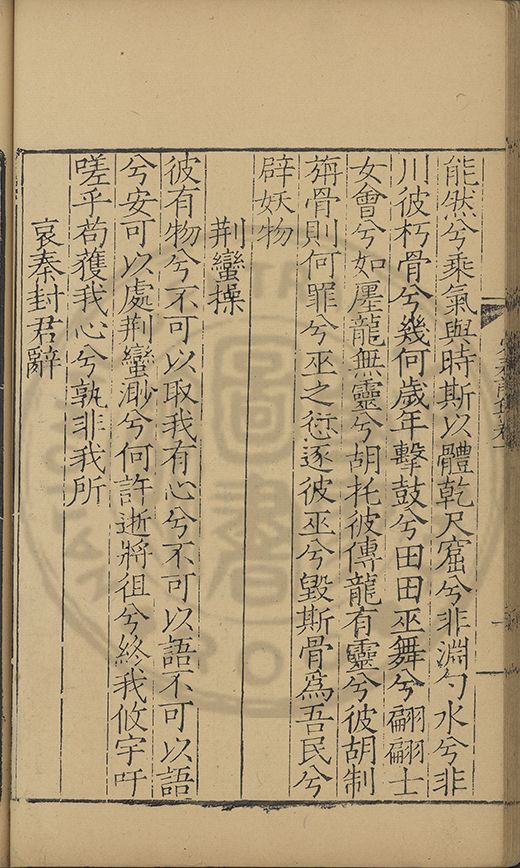 能然兮乘氣與時斯以體乾尺窟兮非淵勺水兮非
川彼朽骨兮幾何歲年擊鼓兮田田巫舞兮翩翩士
女會兮如㕓龍無靈兮胡托彼傳龍有靈兮彼胡制
茲骨則何罪兮巫之愆逐彼巫兮毀斯骨為吾民兮
辟妖物
荆蠻操
彼有物兮不可以取我有心兮不可以語不可以語
兮安可以處荆蠻渺兮何許逝將徂兮終我攸宇吁
嗟乎苟獲我心兮孰非我所
哀秦封君辭